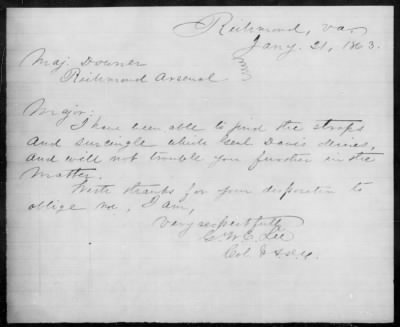 Richmond, Va.
Jany. 21, 1863.
Maj. Downer
Richmond Arsenal
Major:
I have been able to find the straps
and surcingle which Genl Davis desires,
and will not trouble you further in the
matter.
With thanks for your disposition to
oblige me, I am,
very respectfully
G. W. C. Lee
Col. & A.D.C.